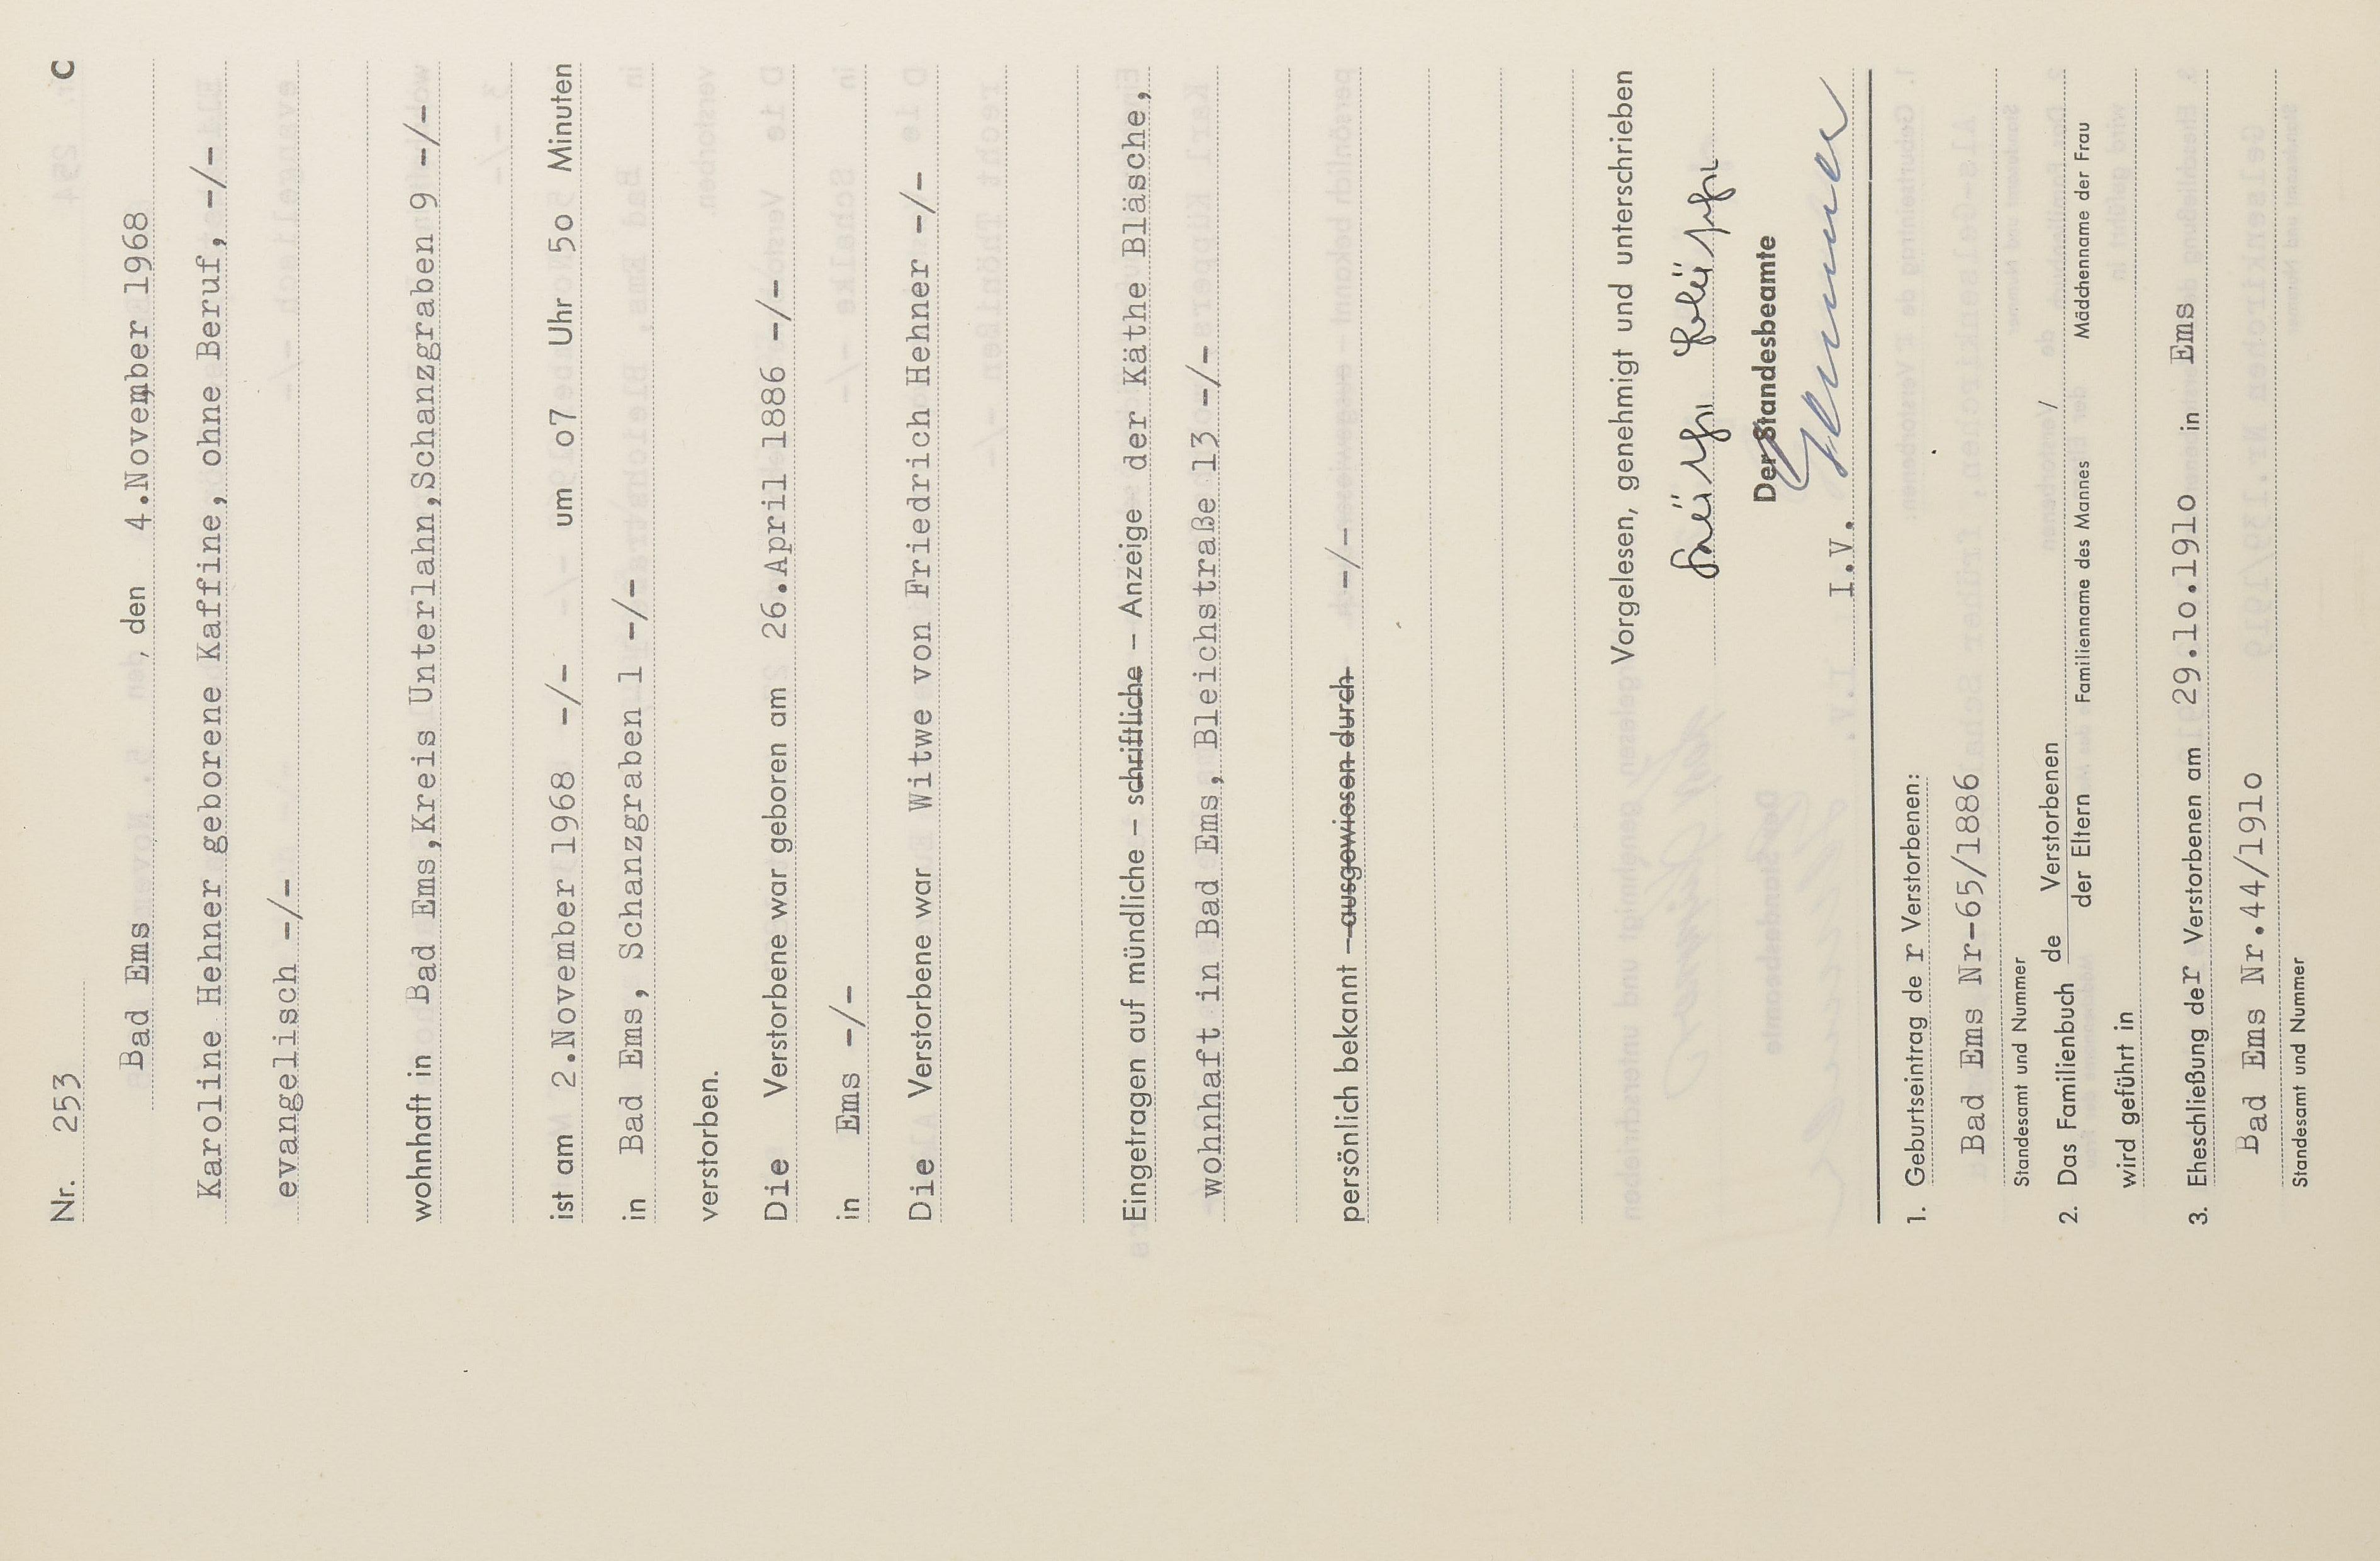 Nr. 253 C
Bad Ems , den 4.November 1968
Karoline Hehner geborene Kaffine, ohne Beruf, -/-
evangelisch -/-
wohnhaft in Bad Ems,Kreis Unterlahn,Schanzgraben 9 -/-
ist am 2.November 1968 -/- um o7 Uhr 5o Minuten
in Bad Ems, Schanzgraben 1 -/-
verstorben.
Die Verstorbene war geboren am 26.April 1886 -/-
in Ems -/-
Die Verstorbene war Witwe von Friedrich Hehner -/-
Eingetragen auf mündliche – schriftliche – Anzeige der Käthe Bläsche,
wohnhaft in Bad Ems, Bleichstraße 13 -/-
persönlich bekannt – ausgewiesen durch -/-
Vorgelesen, genehmigt und unterschrieben
Käthe Bläsche
Der Standesbeamte
I.V.
1. Geburtseintrag de r Verstorbenen:
Bad Ems Nr-65/1886
Standesamt und Nummer
2. Das Familienbuch de Verstorbenen /
der Eltern Familienname des Mannes Mädchenname der Frau
wird geführt in
3. Eheschließung der Verstorbenen am 29.1o.191o in Ems
Bad Ems Nr.44/191o
Standesamt und Nummer